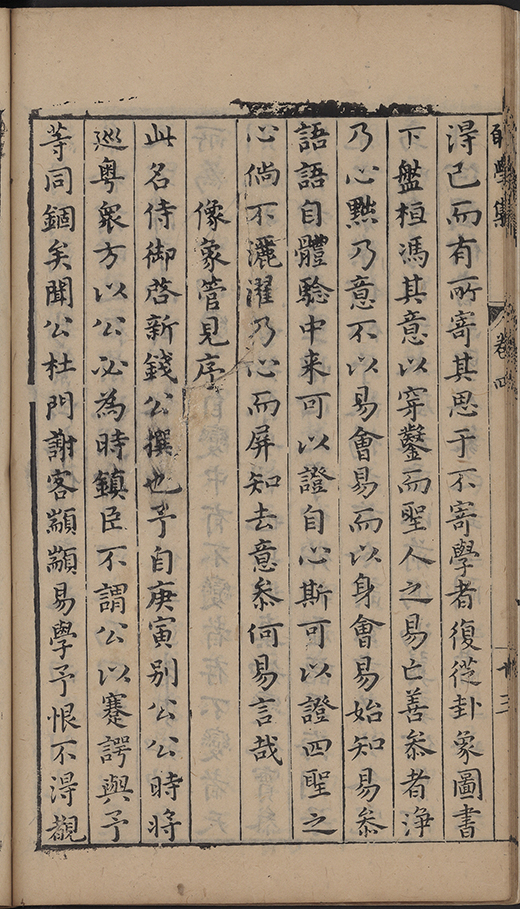 學集
卷四
十三
得已而有所寄其思于不寄學者復從卦象圖書
下盤桓馮其意以穿鑿而聖人之易亡善叅者淨
乃心點乃意不以易會易而以身會易始知易叅
語語自體驗中来可以證自心斯可以證四聖之
心倘不灑濯乃心而屏知去意叅何易言哉
像象管見序
此名侍御啓新錢公撰也予自庚寅别公公時将
廵粤衆方以公必為時鎮臣不謂公以蹇諤與予
等同錮矣聞公杜門謝客顓顓易學予恨不得觀